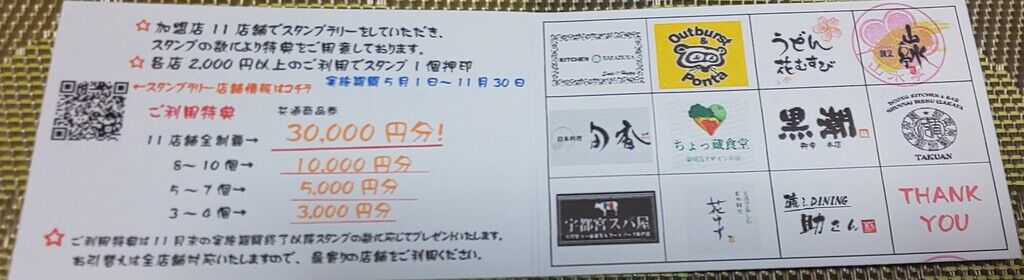 ☆ 加盟店 11 店舗でスタンプラリーをしていただき、
スタンプの数により特典をご用意しております。
☆ 各店 2,000 円以上のご利用でスタンプ 1 個押印
実施期間 5月1日〜11月30日
←スタンプラリー店舗情報はコチラ
ご利用特典 共通商品券
11 店舗全制覇→ 30,000 円分!
8〜10個→ 10,000 円分
5〜7個→ 5,000 円分
3〜4個→ 3,000 円分
☆ ご利用特典は11月末の実施期間終了以降スタンプの数に応じてプレゼントいたします。
お引替えは全店舗対応いたしますので、最寄りの店舗をご利用ください。
KITCHEN SAKAZUKA
Outburst
&
Ponta
うどん
花むすび
日本料理 旬香
ちょっ蔵食堂
黒潮
御幸 本店
DINING KITCHEN & BAR
TAKUAN
宇都宮スパ屋
流しDINING
助さん
THANK
YOU